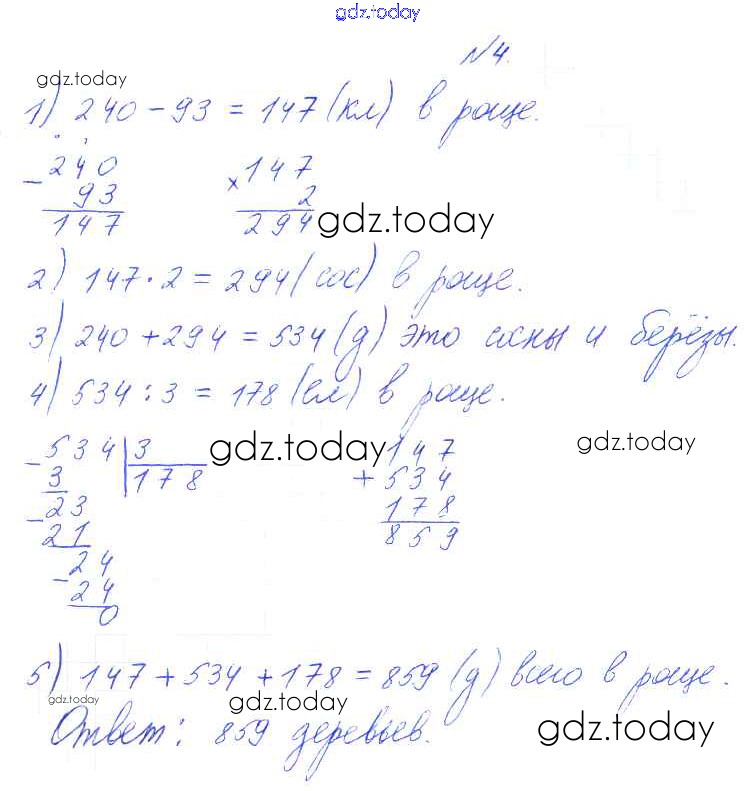 gdz.today
№4.
gdz.today
1) 240 - 93 = 147 (кл) в роще.
- 240
93
147
× 147
2
294
gdz.today
2) 147 · 2 = 294 (сос) в роще.
3) 240 + 294 = 534 (д) это сосны и берёзы.
4) 534 : 3 = 178 (ел) в роще.
- 534 | 3
3 178
- 23
21
- 24
24
0
gdz.today
147
+ 534
178
859
gdz.today
5) 147 + 534 + 178 = 859 (д) всего в роще.
gdz.today
gdz.today
Ответ: 859 деревьев.
gdz.today